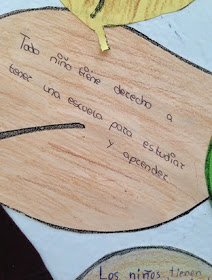 Todo niño tiene derecho a
tener una escuela para estudiar
y aprender
Los niños tienen